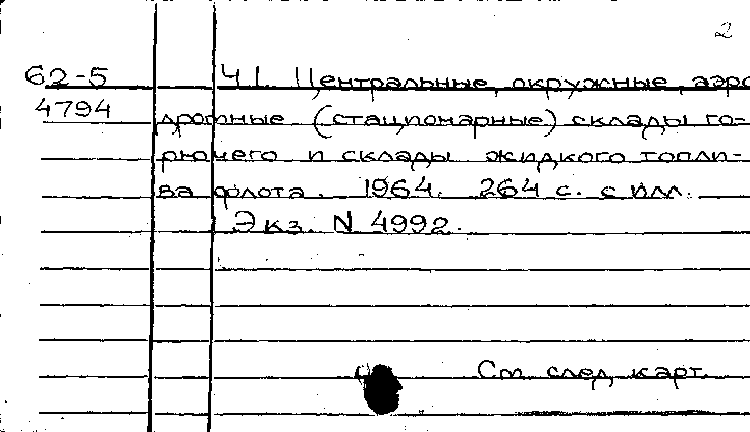 2
62-5 Ч1. Центральные, окружные, аэро
4794 дромные (стационарные) склады го-
рючего и склады жидкого топли-
ва флота. 1964. 264 с. с илл.
Экз. N 4992.
См. след. карт.